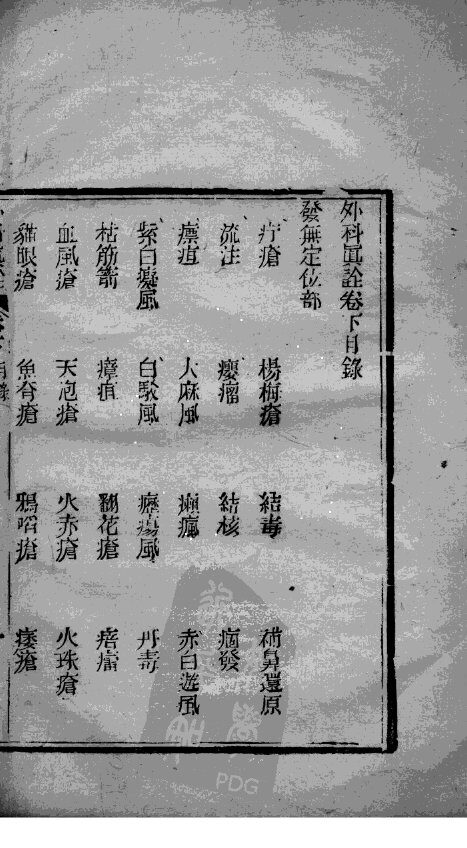 外科眞詮卷下目錄
發無定位部
疔瘡 楊梅瘡 結毒 補鼻還原
流注 癭瘤 結核 痼發
瘭疽 大麻風 癩瘋 赤白遊風
紫白癜風 白駁風 癧瘍風 丹毒
枯筋箭 瘴疽 翻花瘡 痦㿔
血風瘡 天泡瘡 火赤瘡 火珠瘡
貓眼瘡 魚脊瘡 鴉啗瘡 痿瘡
PDG